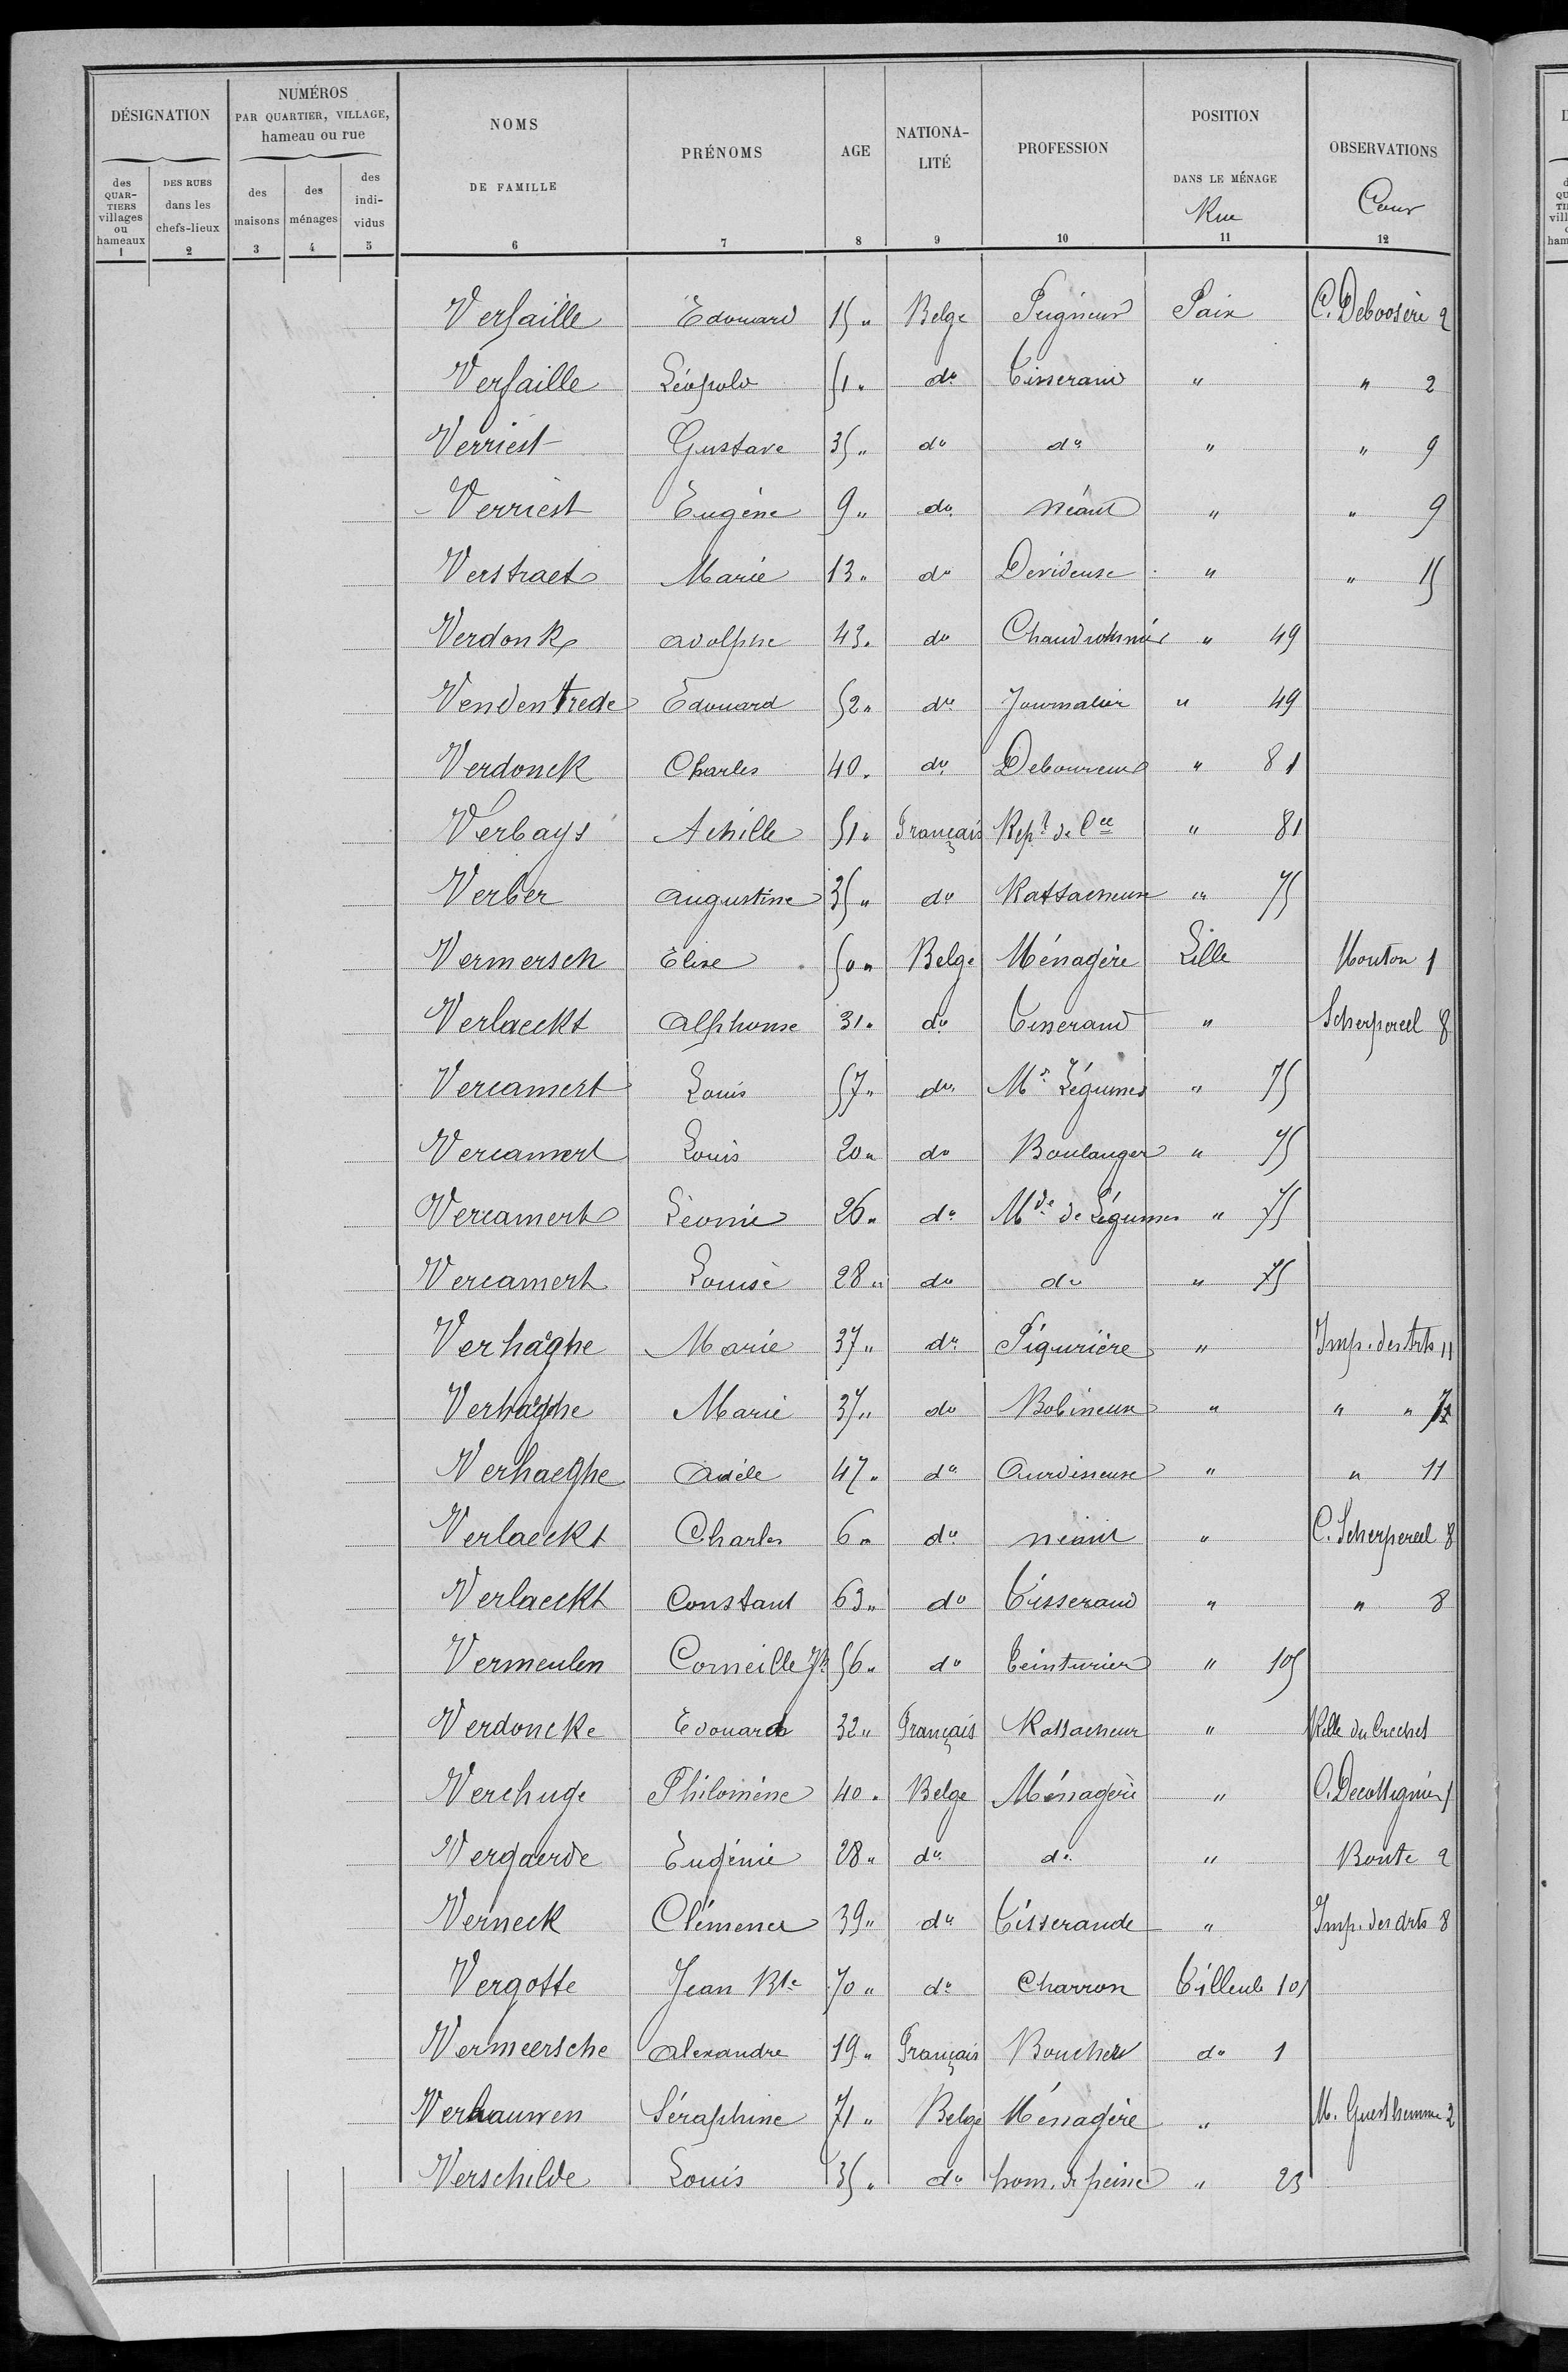 DÉSIGNATION
NUMÉROS
PAR QUARTIER, VILLAGE,
hameau ou rue
NOMS
DE FAMILLE
PRÉNOMS
AGE
NATIONA-
LITÉ
PROFESSION
POSITION
DANS LE MÉNAGE
Rue
OBSERVATIONS
Cour
des QUAR-TIERS villages ou hameaux
DES RUES dans les chefs-lieux
des maisons
des ménages
des indi-vidus
1 2 3 4 5 6 7 8 9 10 11 12
Versaille Edouard 15 " Belge Peigneur Paix C. Deboosère 2
Versaille Léopold 51 " do Tisserand " " 2
Verriest Gustave 35 " do do " " 9
Verriest Eugène 9 " do néant " " 9
Verstraet Marie 13 " do Devideuse " " 15
Verdonk adolphe 43 " do Chaudronnier " 49
Vendentrede Edouard 52 " do Journalier " 49
Verdonck Charles 40 " do Deboureur " 81
Verbays Achille 51 " Français Rept de Cce " 81
Verber augustine 35 " do Rattacheuse " 75
Vermersch Elise 50 " Belge Ménagère Lille Mouton 1
Verlaeckt Alphonse 31 " do Tisserand " Scherpereel 8
Vercamert Louis 57 " do Md Légumes " 75
Vercamert Louis 20 " do Boulanger " 75
Vercamert Léonie 26 " do Mde de Légumes " 75
Vercamert Louise 28 " do do " 75
Verhaghe Marie 37 " do Piqurière " Imp. des Arts 11
Verhaghe Marie 37 " do Bobineuse " " "
Verhaeghe Adèle 47 " do Ourdisseuse " " 11
Verlaeckt Charles 6 " do néant " C. Scherpereel 8
Verlaeckt Constant 63 " do Tisserand " " 8
Vermeulen Corneille Jh 56 " do Teinturier " 105
Verdoncke Edouard 32 " Français Rattacheur " Relle du Crechet
Verchuge Philomène 40 " Belge Ménagère " C. Decottignies 1
Vergaerde Eugénie 28 " do do " Bonte 2
Verneck Clémence 39 " do Tisserande " Imp. des arts 8
Vergotte Jean Bte 70 " do Charron Tilleul 101
Vermeersche alexandre 19 " Français Boucher do 1
Verhauwen Séraphine 71 " Belge Ménagère " 2
Verschilde Louis 35 " do hom. de peine " 23